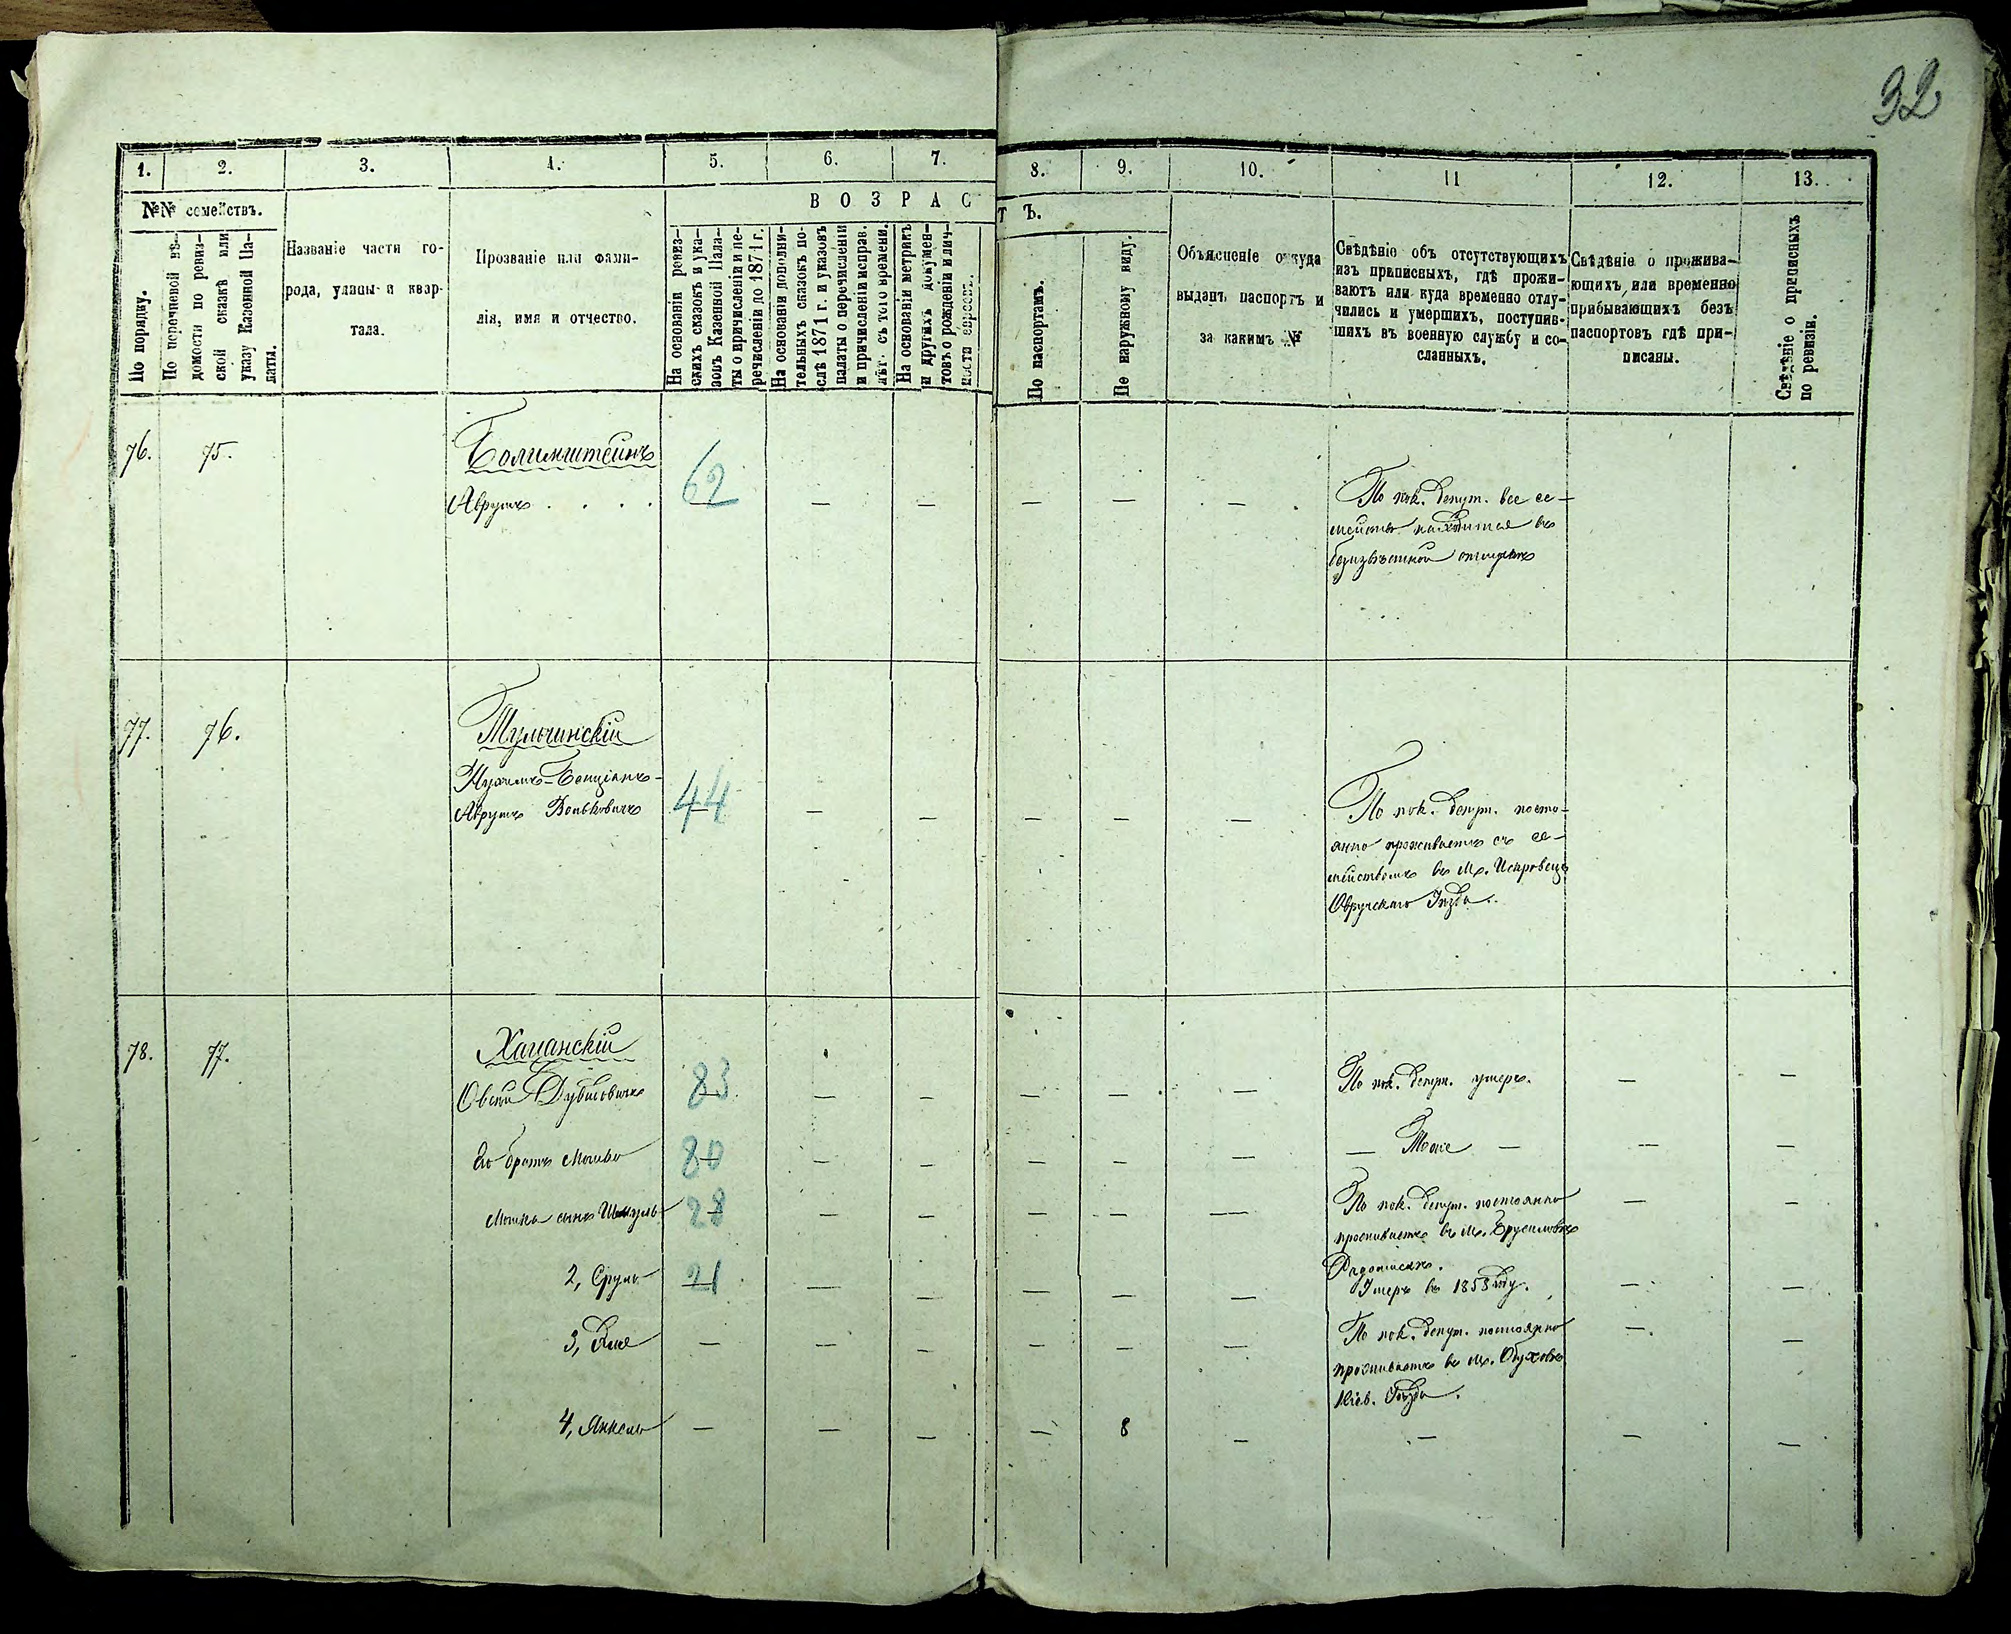 32
1. 2. 3. 4. 5. 6. 7. 8. 9. 10. 11 12. 13.
№№ семействъ.
ВОЗРАСТЪ.
По порядку.
По перечневой вѣ-
домости по ревиз-
ской сказкѣ или
указу Казенной Па-
латы.
Названіе части го-
рода, улицы и квар-
тала.
Прозваніе или фами-
лія, имя и отчество.
На основаніи ревиз-
скихъ сказокъ и ука-
зовъ Казенной Пала-
ты о причисленіи и пе-
речисленіи до 1871 г.
На основаніи дополни-
тельныхъ сказокъ по-
слѣ 1871 г. и указовъ
палаты о перечисленіи
и причисленіи исправ.
лѣт. съ того времени.
На основаніи метрикъ
и другихъ докумен-
товъ о рожденіи и лич-
ности
По паспортамъ.
По наружному виду.
Объясненіе откуда
выданъ паспортъ и
за какимъ №
Свѣдѣніе объ отсутствующихъ
изъ приписныхъ, гдѣ прожи-
ваютъ или куда временно отлу-
чились и умершихъ, поступив-
шихъ въ военную службу и со-
сланныхъ.
Свѣдѣніе о прожива-
ющихъ или временно
прибывающихъ безъ
паспортовъ гдѣ при-
писаны.
Свѣдѣніе о приписныхъ
по ревизіи.
76. 75. Болимштейнъ
Аврумъ . . . . 62 — — — — — По пок. депут. все се-
мейство находится въ
безизвѣстной отлучкѣ
77. 76. Тульчинскій
Нухимъ-Бенціонъ-
Аврумъ Вольковичъ 44 — — — — — По пок. депут. посто-
янно проживаетъ съ се-
мействомъ въ м.
Овручскаго Уѣзда.
78. 77. Хацанскій
Овсей Дувидовичъ 83 — — — — — По пок. депут. умеръ. — —
Его братъ Мошко 80 — — — — — — Тоже — — —
Мошка сынъ 28 — — — — — По пок. депут. постоянно — —
проживаетъ въ м. Брусиловѣ
Радомысл.
2, Сруль 21 — — — — — Умеръ въ 1858 году. — —
3, — — — — — — По пок. депут. постоянно — —
проживаетъ въ м. Обуховѣ
Кіев. Уѣзда.
4, Янкель — — — — 8 — — — —